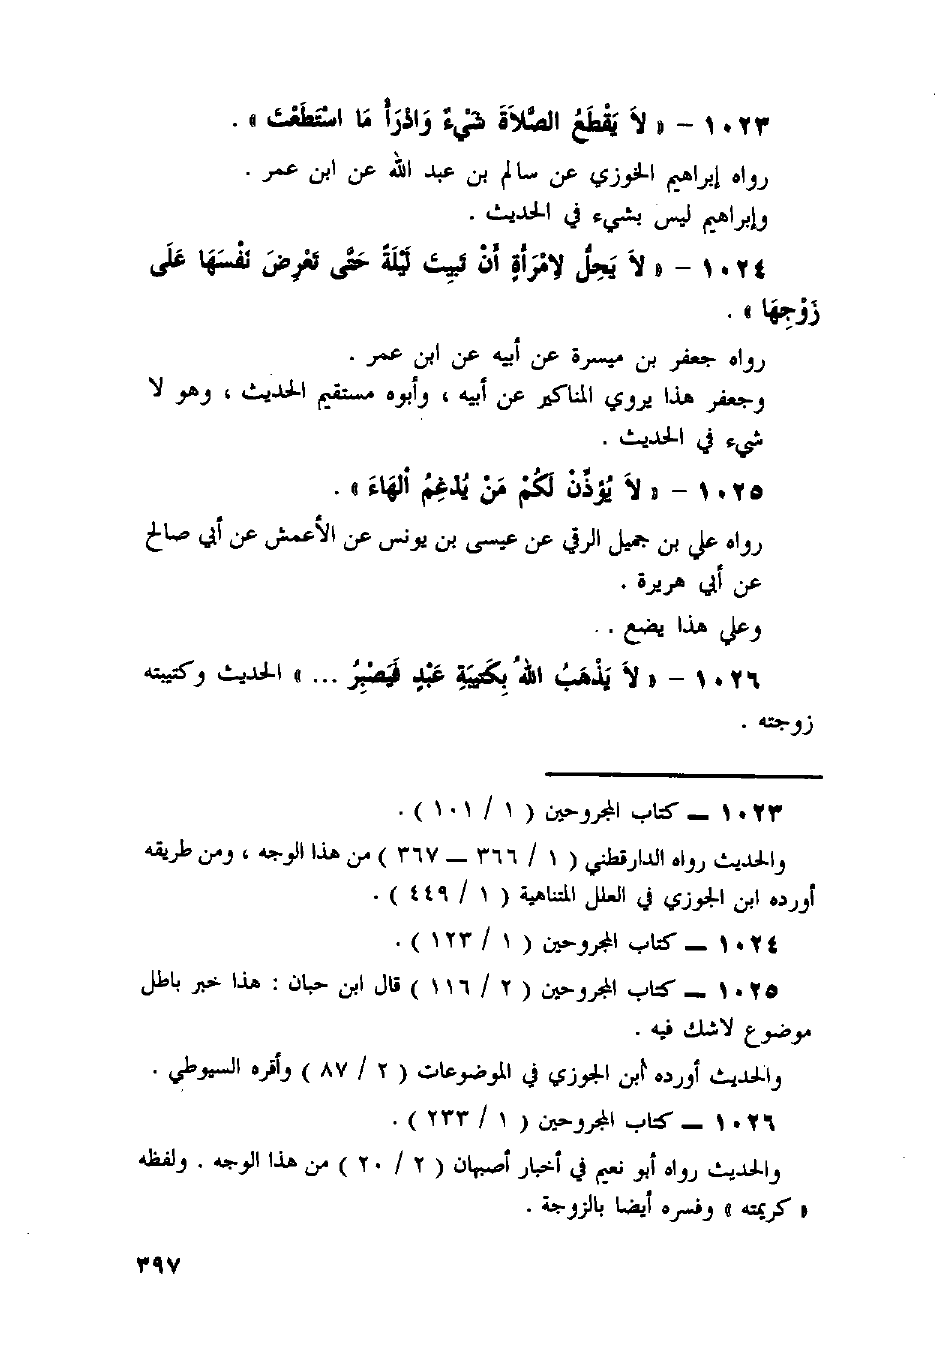 ١٠٢٣ - « لاَ يَقْطَعُ الصَّلاَةَ شَيْءٌ وَادْرَأْ مَا اسْتَطَعْتَ » .
رواه إبراهيم الخوزي عن سالم بن عبد الله عن ابن عمر .
وإبراهيم ليس بشيء في الحديث .
١٠٢٤ - « لاَ يَحِلُّ لِامْرَأَةٍ أَنْ تَبِيتَ لَيْلَةً حَتَّى تَعْرِضَ نَفْسَهَا عَلَى
زَوْجِهَا » .
رواه جعفر بن ميسرة عن أبيه عن ابن عمر .
وجعفر هذا يروي المناكير عن أبيه ، وأبوه مستقيم الحديث ، وهو لا
شيء في الحديث .
١٠٢٥ - « لاَ يُؤَذِّنْ لَكُمْ مَنْ يُدْغِمُ الْهَاءَ » .
رواه علي بن جميل الرقي عن عيسى بن يونس عن الأعمش عن أبي صالح
عن أبي هريرة .
وعلي هذا يضع .
١٠٢٦ - « لاَ يَذْهَبُ اللهُ بِكَتِيبَةِ عَبْدٍ فَيَصْبِرُ ... » الحديث وكتيبته
زوجته .
١٠٢٣ ــ كتاب المجروحين ( ١ / ١٠١ ) .
والحديث رواه الدارقطني ( ١ / ٣٦٦ ــ ٣٦٧ ) من هذا الوجه ، ومن طريقه
أورده ابن الجوزي في العلل المتناهية ( ١ / ٤٤٩ ) .
١٠٢٤ ــ كتاب المجروحين ( ١ / ١٢٣ ) .
١٠٢٥ ــ كتاب المجروحين ( ٢ / ١١٦ ) قال ابن حبان : هذا خبر باطل
موضوع لاشك فيه .
والحديث أورده ابن الجوزي في الموضوعات ( ٢ / ٨٧ ) وأقره السيوطي .
١٠٢٦ ــ كتاب المجروحين ( ١ / ٢٣٣ ) .
والحديث رواه أبو نعيم في أخبار أصبهان ( ٢ / ٢٠ ) من هذا الوجه . ولفظه
« كريمته » وفسره أيضا بالزوجة .
٣٩٧